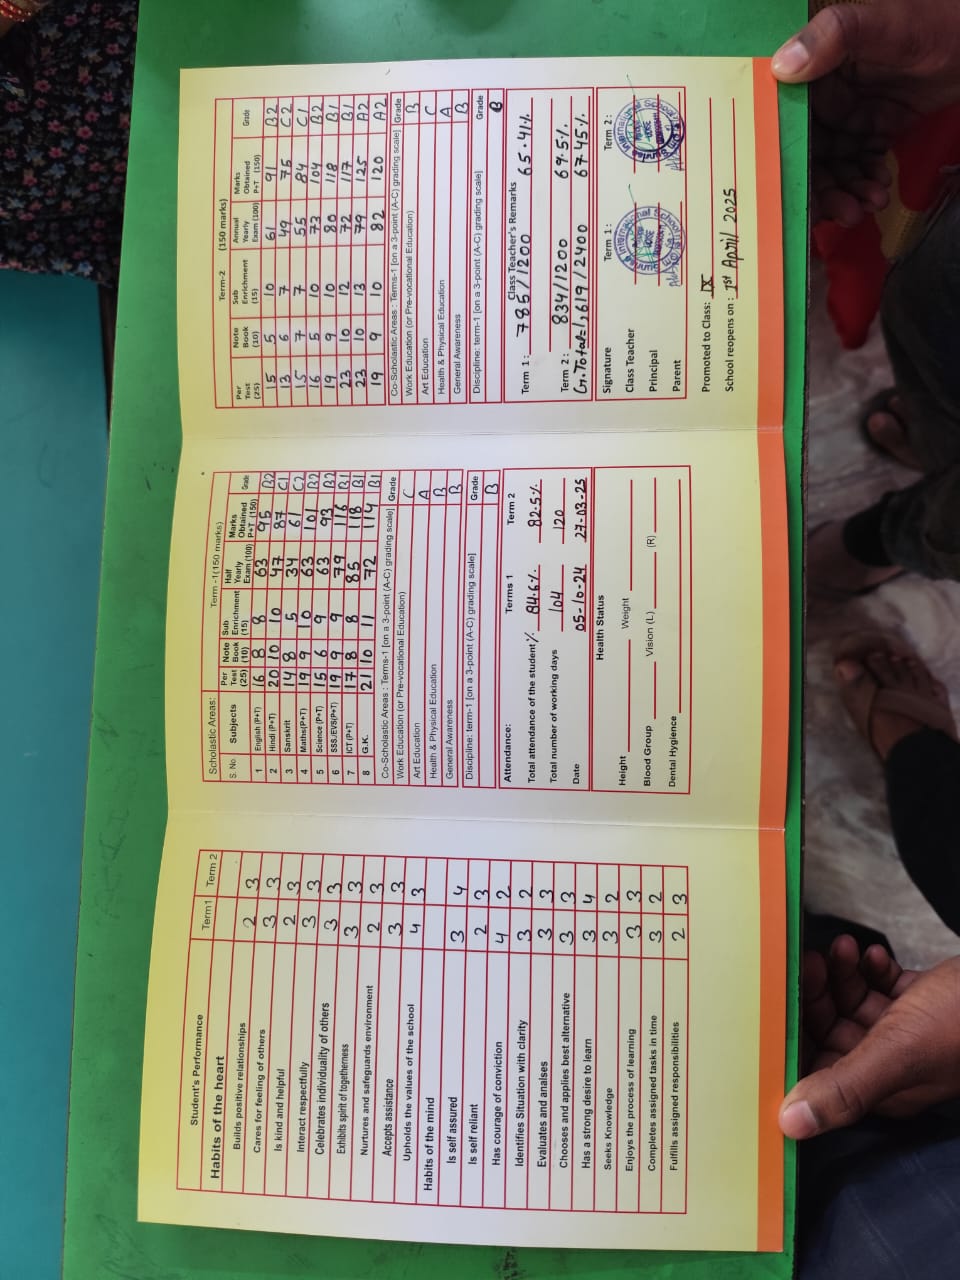 Student's Performance
Habits of the heart Term1 Term 2
Builds positive relationships 2 3
Cares for feeling of others 3 3
Is kind and helpful 2 3
Interact respectfully 3 3
Celebrates individuality of others 3 3
Exhibits spirit of togetherness 3 3
Nurtures and safeguards environment 2 3
Accepts assistance 3 3
Upholds the values of the school 4 3
Habits of the mind
Is self assured 3 4
Is self reliant 2 3
Has courage of conviction 4 2
Identifies Situation with clarity 3 2
Evaluates and analses 3 3
Chooses and applies best alternative 3 3
Has a strong desire to learn 3 4
Seeks Knowledge 3 2
Enjoys the process of learning 3 3
Completes assigned tasks in time 3 2
Fulfills assigned responsibilities 2 3
Scholastic Areas: Term -1(150 marks)
S. No. Subjects Per Test (25) Note Book (10) Sub Enrichment (15) Half Yearly Exam (100) Marks Obtained P+T (150) Grade
1 English (P+T) 16 8 8 63 95 B2
2 Hindi (P+T) 20 10 10 47 87 C1
3 Sanskrit 14 8 5 34 61 C2
4 Maths(P+T) 19 9 10 63 101 B2
5 Science (P+T) 15 6 9 63 93 B2
6 SSS./EVS(P+T) 19 9 9 79 116 B1
7 ICT (P+T) 17 8 8 85 118 B1
8 G.K. 21 10 11 72 114 B1
Co-Scholastic Areas : Terms-1 [on a 3-point (A-C) grading scale] Grade
Work Education (or Pre-vocational Education) C
Art Education A
Health & Physical Education B
General Awareness B
Discipline: term-1 [on a 3-point (A-C) grading scale] Grade
B
Attendance: Terms 1 Term 2
Total attendance of the student % 84.6% 82.5%
Total number of working days 104 120
Date 05-10-24 27-03-25
Health Status
Height Weight
Blood Group Vision (L) (R)
Dental Hygiene
Term-2 (150 marks)
Per Test (25) Note Book (10) Sub Enrichment (15) Annual Yearly Exam (100) Marks Obtained P+T (150) Grade
15 5 10 61 91 B2
13 6 7 49 75 C2
15 7 7 55 84 C1
16 5 10 73 104 B2
19 9 10 80 118 B1
23 10 12 72 117 B1
23 10 13 79 125 A2
19 9 10 82 120 A2
Co-Scholastic Areas : Terms-1 [on a 3-point (A-C) grading scale] Grade
Work Education (or Pre-vocational Education) B
Art Education C
Health & Physical Education A
General Awareness B
Discipline: term-1 [on a 3-point (A-C) grading scale] Grade
B
Class Teacher's Remarks
Term 1: 785/1200 65.41%
Term 2: 834/1200 69.5%
G.Total=1,619/2400 67.45%
Signature Term 1: Term 2:
Class Teacher
Principal
Parent
Promoted to Class: IX
School reopens on: 1st April/2025